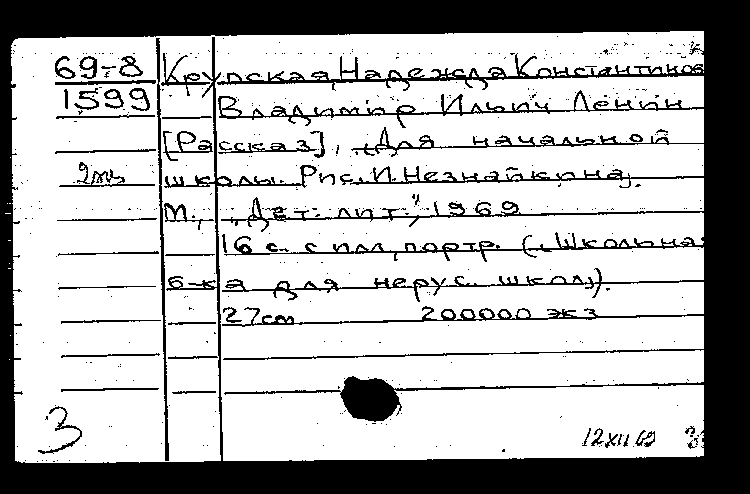 69-8 Крупская, Надежда Константинов
1599 Владимир Ильич Ленин
[Рассказ], „Для начальной
2 экз школы. Рис. И. Незнайкина.
М., „Дет. лит.", 1969
16 с. с илл, портр. („Школьная
б-ка для нерус. школ").
27 cm 200000 экз
3
12 XII 69